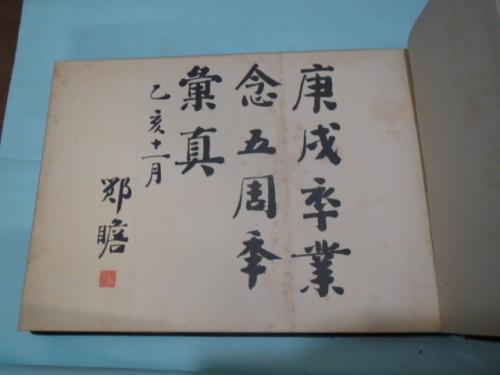 庚戌卒業
念五周秊
彙真
乙亥十一月
鄭瞻